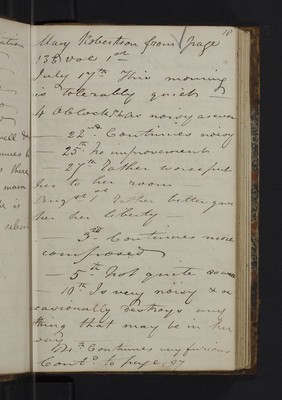 18
Mary Robertson from page
135 vol 1st
July 17th This morning
is tolerably quiet
4 OClock P.M. as noisy as ever
— 22nd Continues noisy
— 25th no improvement
— 27th Rather worse put
her to her room
Augst 1st Rather better gave
her her liberty
— 3rd Continues more
composed
— 5th Not quite so
— 10th Is very noisy & o
ccasionally destroys any
thing that may be in her
way
14th Continues very furious
Contd to page 97